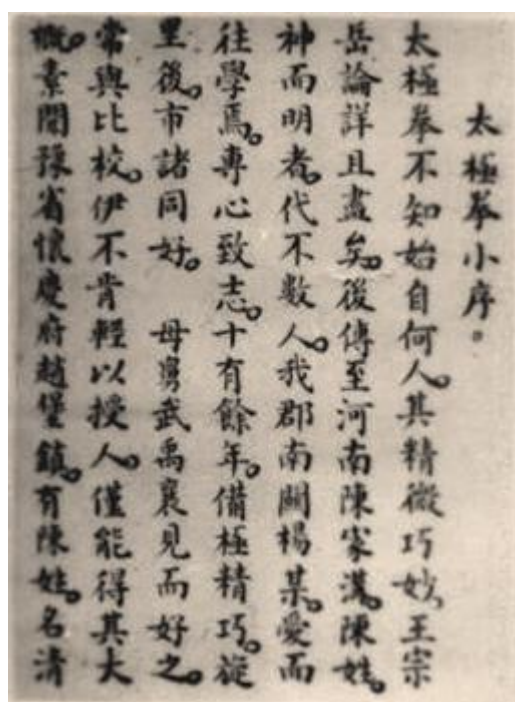 太極拳小序。
太極拳不知始自何人。其精微巧妙。王宗
岳論詳且盡矣。後傳至河南陳家溝。陳姓。
神而明者。代不數人。我郡南關楊某。愛而
往學焉。專心致志。十有餘年。備極精巧。旋
里後。市諸同好。　母舅武禹襄見而好之。
常與比校。伊不肯輕以授人。僅能得其大
概。素聞豫省懷慶府趙堡鎮。有陳姓。名清